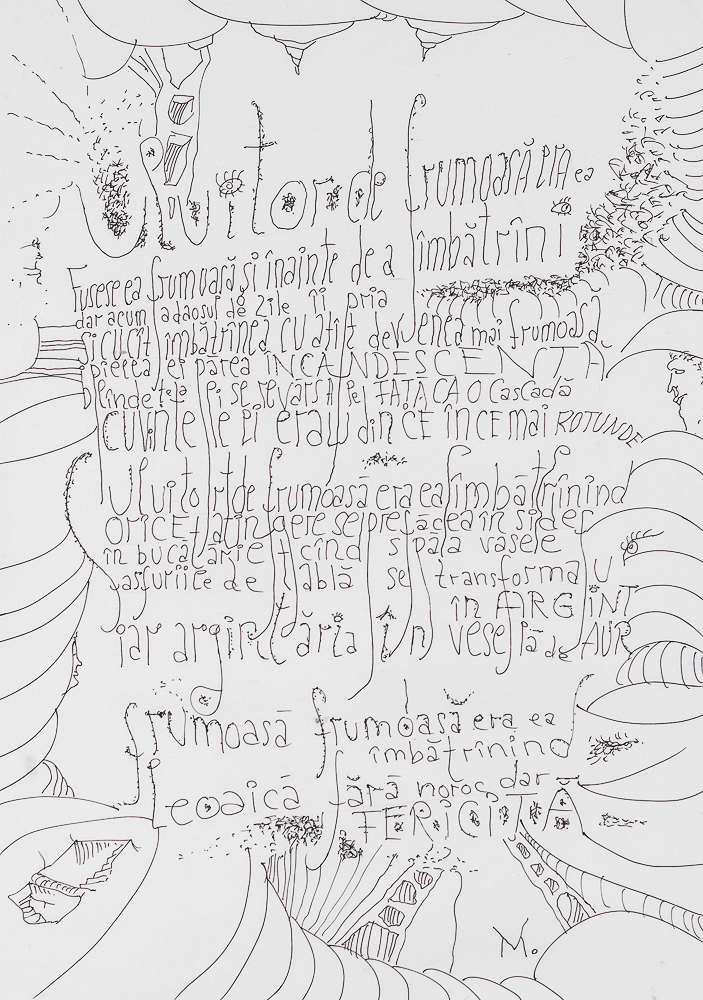 Uluitor de frumoasă era ea
îmbătrînind
Fusese ea frumoasă și înainte de a
dar acum adaosul de zile îi pria
și cu cît îmbătrînea cu atît devenea mai frumoasă
pielea ei părea INCANDESCENTĂ
ei se revărsa pe FAȚĂ CA O cascadă
cuvintele ei erau din CE ÎN CE mai ROTUNDE
Uluitor de frumoasă era ea îmbătrînind
ORICE atingere se prefăcea în sidef
în bucătărie cînd spăla vasele
farfuriile de tablă se transformau
în ARGINT
iar argintăria în veselă de AUR
frumoasă frumoasă era ea
îmbătrînind
leoaică fără noroc dar
FERICITĂ
M.